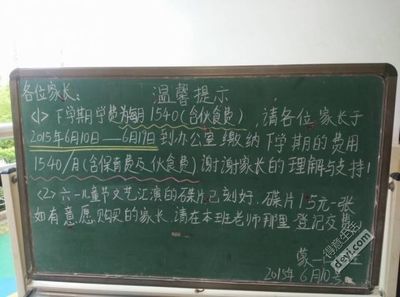 各位家长: 温馨提示
<1> 下学期学费为每月1540(含伙食费), 请各位家长于
2015年6月10日——6月19日到办公室缴纳下学期的费用
1540/月(含保育费及伙食费)谢谢家长的理解与支持!
<2> 六一儿童节文艺汇演的碟片已刻好. 碟片15元一张
如有意愿购买的家长, 请在本班老师那里登记交费
蒙一
2015年6月10号
得意生活
deyi.com